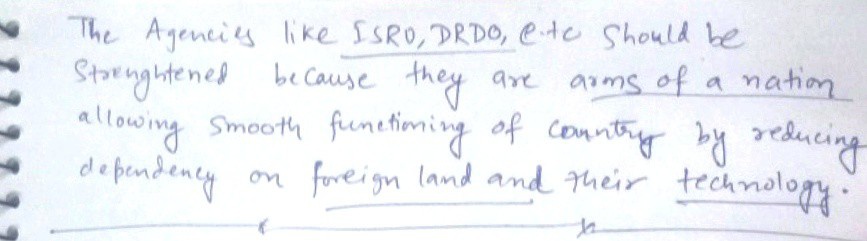 The Agencies like ISRO, DRDO, e.tc should be
Strenghtened because they are arms of a nation
allowing smooth functioning of country by reducing
dependency on foreign land and their technology.